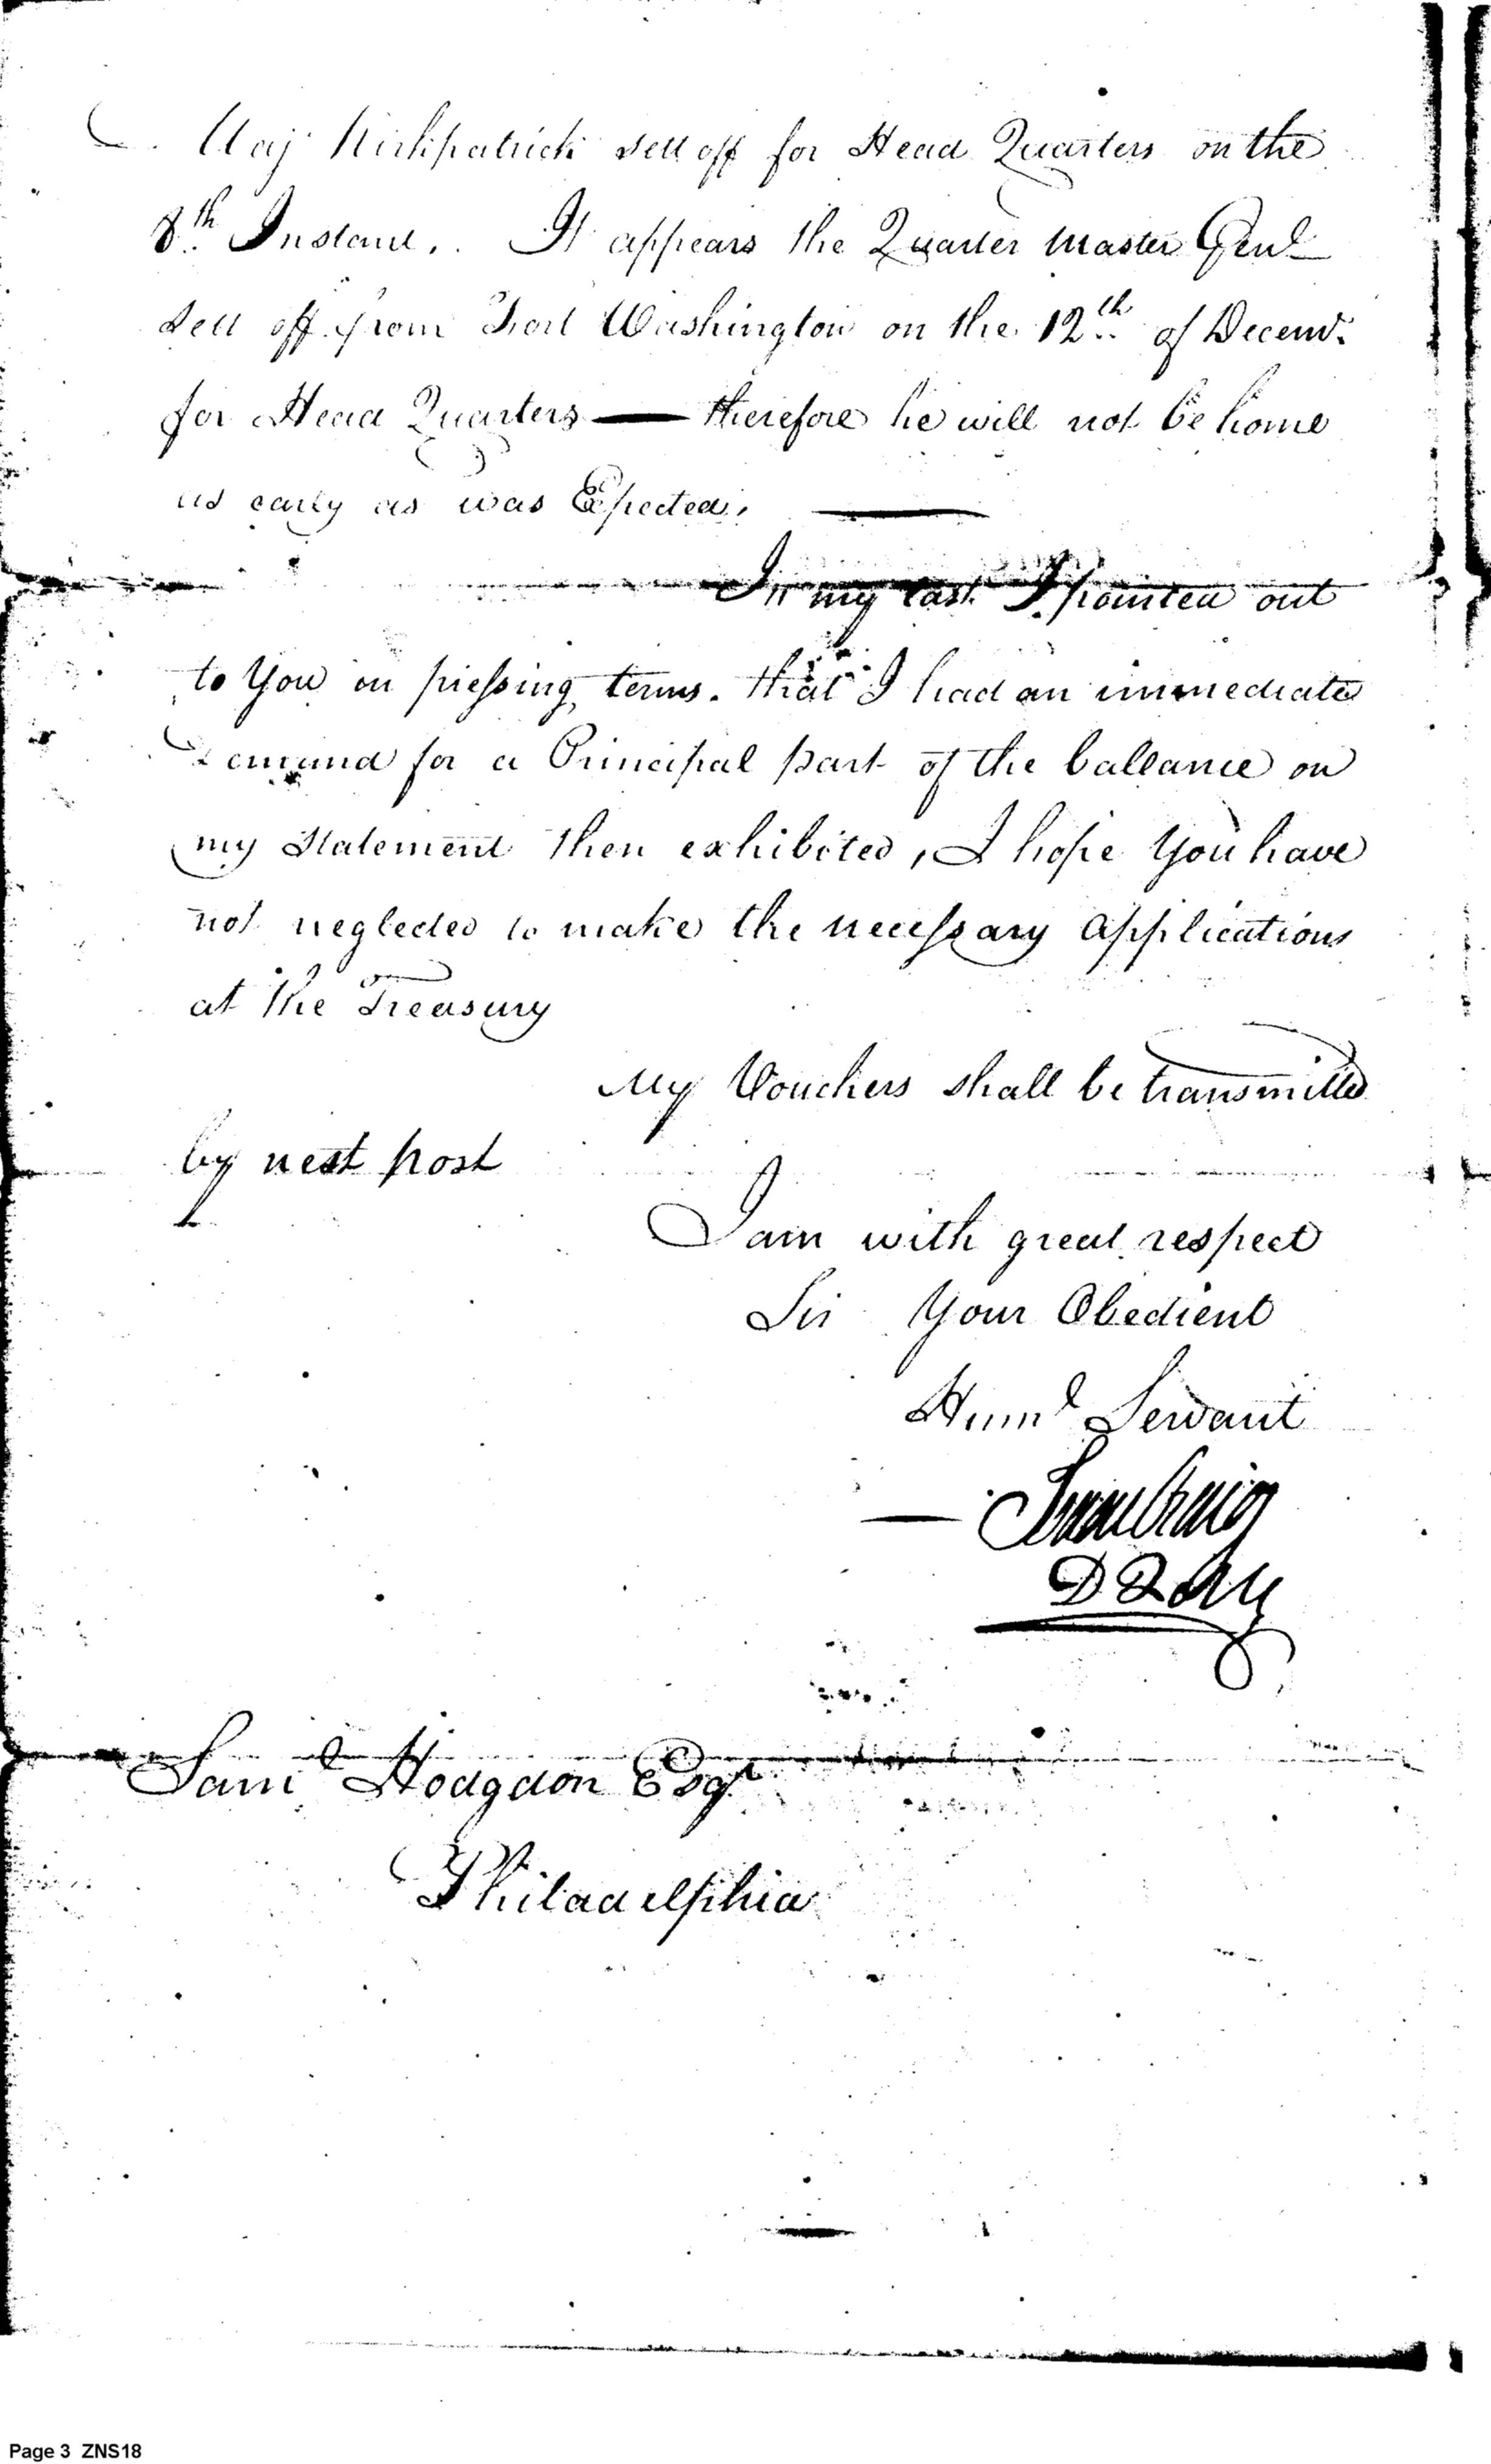 Maj Kirkpatrick sett off for Head Quarters on the
8th Instant. It appears the Quarter Master Genl
sett off from Fort Washington on the 12th of Decemr
for Head Quarters — therefore he will not be home
as early as was Expected. —
In my last I pointed out
to You in pressing terms. that I had an immediate
Demand for a Principal part of the ballance on
my Statement then exhibited, I hope You have
not neglected to make the necessary applications
at the Treasury
My Vouchers shall be transmitted
by next post
I am with great respect
Sir Your Obedient
Huml Servant
— Isaac Craig
D Q M
Saml Hodgdon Esqr
Philadelphia
Page 3 ZNS18